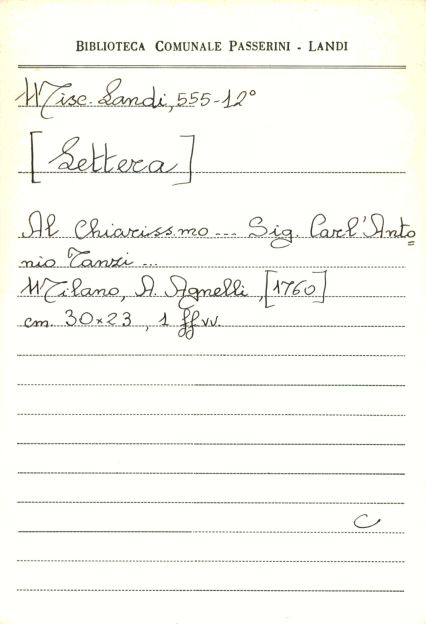 BIBLIOTECA COMUNALE PASSERINI - LANDI
Misc. Landi, 555-12°
[Lettera]
Al Chiariss.mo --- Sig. Carl'Anto=
nio Tanzi ...
Milano, A. Agnelli, [1760]
cm. 30×23, 1 ff vv.
C